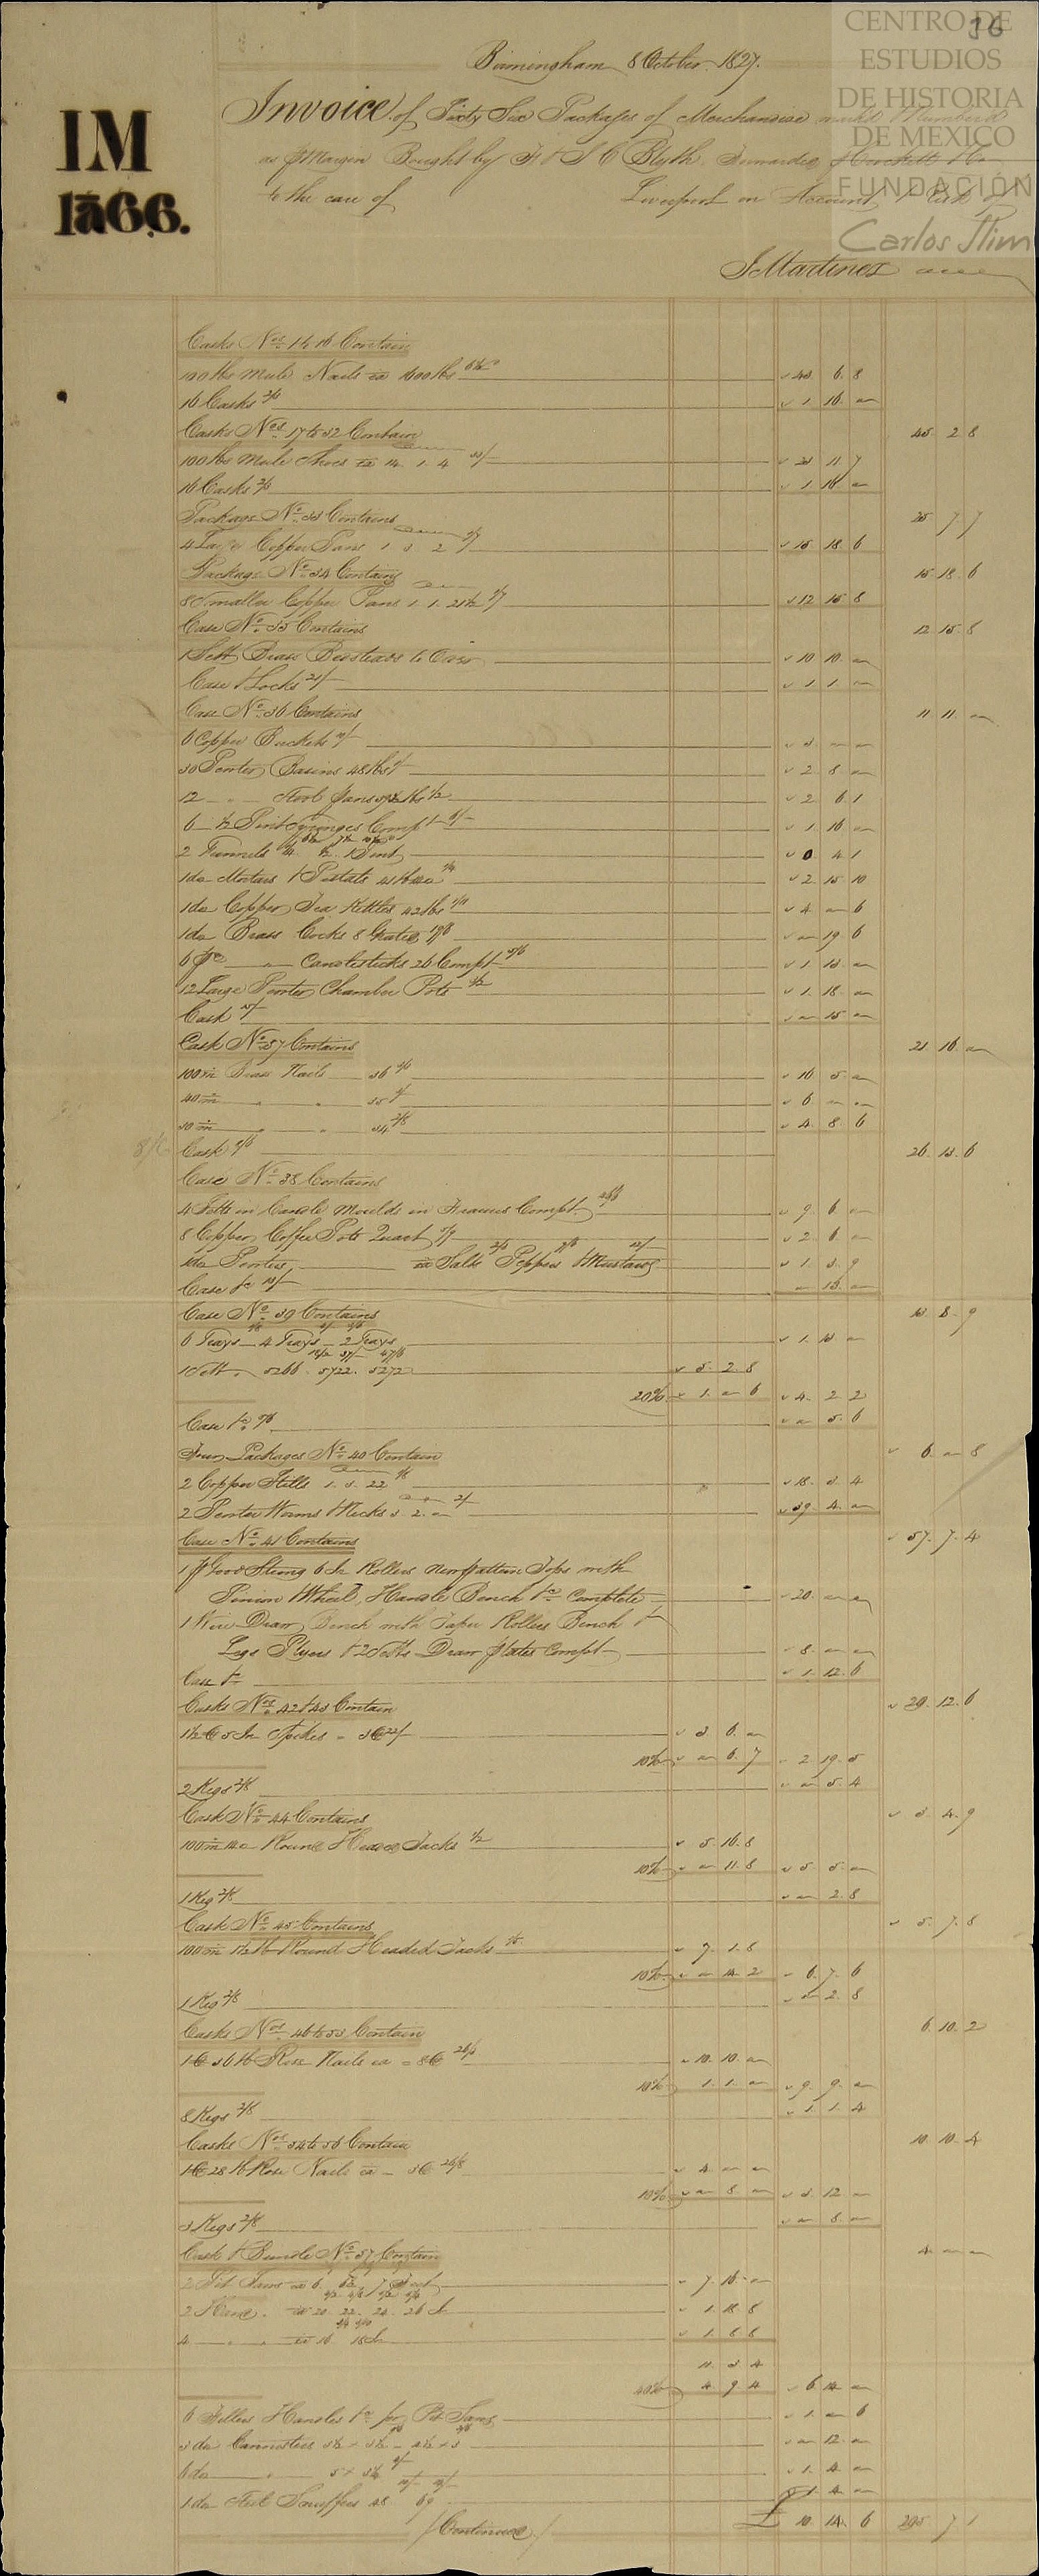 CENTRO DE
ESTUDIOS
DE HISTORIA
DE MEXICO
FUNDACIÓN
Carlos Slim
36
Birmingham 8 October 1827.
IM
1 à 66.
Invoice of Sixty Six Packages of Merchandise markd & Numberd
as pr Margin Bought by F & S C Blyth
to the care of Liverpool on Account & Risk of
J Martinez
Casks Nos 1 to 16 Contain
100 lbs Mule Nails ea 1600 lbs 6½ 43 6 8
16 Casks 2/3 1 16
Casks Nos 17 to 32 Contain 45 2 8
100 lbs Mule Shoes ea 14 1 4 23 11 7
16 Casks 2/3 1 16
Package No 33 Contains 25 7 7
4 Large Copper Pans 1 3 2 15 18 6
Package No 34 Contains 15 18 6
8 Smaller Copper Pans 1 1 21½ 12 15 8
Case No 35 Contains 12 15 8
1 Sett Brass Bedsteads 10 10
Case & Locks 21/ 1 1
Case No 36 Contains 11 11
6 Copper Buckets 10/ 3
30 Pewter Basins 48 lbs 1/ 2 8
12 " Stool Pans 2 6 1
6 ½ Pint Syringes Compt 6/ 1 16
2 Funnels ¼ ½ 1 Pint 0 4 1
1 do Mortars & Pestals 2 15 10
1 do Copper Tea Kettles 42 lbs 1/11 4 6
1 do Brass Cocks 19/6 19 6
6 pr " Candlesticks 26 Compt 5/6 1 13
12 Large Pewter Chamber Pots 3/2 1 18
Cask 15/ 15
Cask No 37 Contains 21 16
100 m Brass Nails 36 3/3 16 5
40 m " " 35 3/ 6
30 m " " 34 4 8 6
8/6 Cask 26 13 6
Case No 38 Contains
4 Setts in Candle Moulds in Frames Compt 46/6 9 6
8 Copper Coffee Pots Quart 5/9 2 6
1 do Pewter ea Salts Peppers & Mustard 1 3 9
Case &c 13/ 13
Case No 39 Contains 13 8 9
6 Trays 4 Trays 2 Trays 1 13
1 Sett 5266 5722 5272 5 2 8
20% 1 6 4 2 2
Case &c 5/6 5 6
Four Packages No 40 Contain 6 8
2 Copper Stills 1 3 22 18 3 4
2 Pewter Worms & Necks 3 2 2/ 39 4
Case No 41 Contains 57 7 4
1 pr Good Strong 6 In Rollers New Pattern Tops with
Pinion Wheel, Handle Bench &c Complete 20
1 Wire Draw Bench with Taper Rollers Bench &
Legs Plyers & 2 Setts Draw plates Compt 8
Case &c 1 12 6
Casks Nos 42 & 43 Contain 29 12 6
1½ C 5 In Spikes = 3 C 22/ 3 6
10% 6 7 2 19 5
2 Kegs 2/8 5 4
Cask No 44 Contains 3 4 9
100 m Round Head Tacks 1/2 5 16 8
10% 11 8 5 5
1 Keg 2/8 2 8
Cask No 45 Contains 5 7 8
100 m 1½ lb Round Headed Tacks 1/5 7 1 8
10% 14 2 6 7 6
1 Keg 2/8 2 8
Casks Nos 46 to 53 Contain 6 10 2
1 C 36 lb Rose Nails ea = 8 C 26/3 10 10
10% 1 1 9 9
8 Kegs 2/8 1 1 4
Casks Nos 54 to 56 Contain 10 10 4
1 C 28 lb Rose Nails ea = 3 C 26/8 4
10% 8 3 12
3 Kegs 2/8 8
Cask & Bundle No 57 Contain 4
2 Pit Saws ea 6 6½ 7 Feet 7 16
2 Hand ea 20 22 24 26 In 1 18 8
4 " " ea 16 18 In 1 8 8
11 3 4
40% 4 9 4 6 14
6 Tillers Handles &c for Pit Saws 1 6
3 do Cannisters 12
6 do " 1 4
1 do Steel Snuffers 48 69 1 4
/Continued/ £ 10 14 6 295 7 1